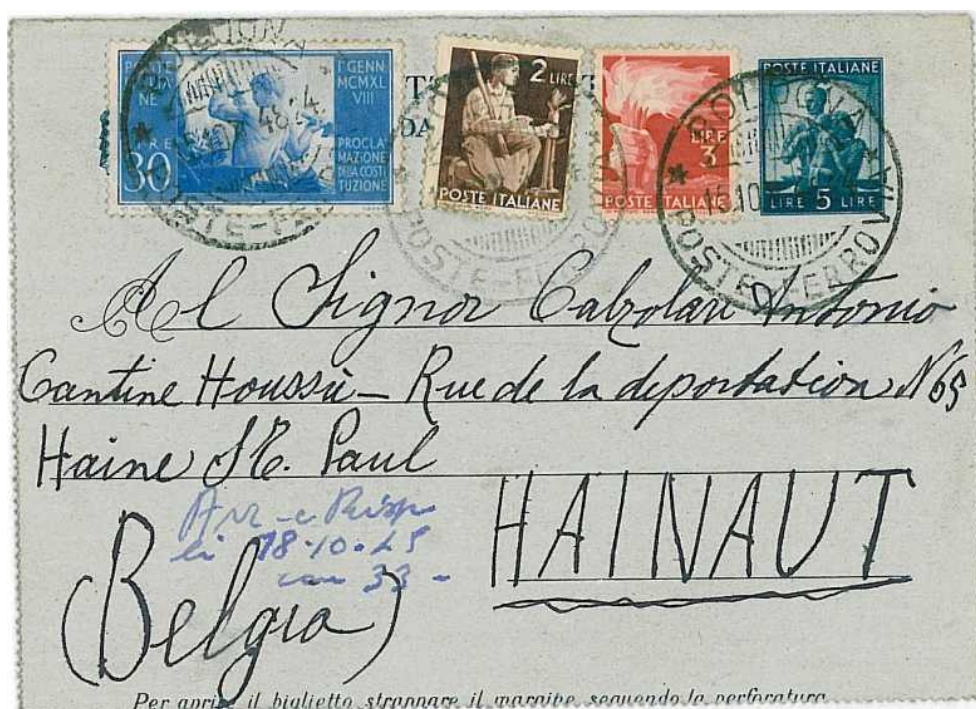 POSTE
I° GENN.
MCMXL
VIII
LIRE
30
PROCLA
MAZIONE
DELLA COSTI
TUZIONE
2 LIRE
POSTE ITALIANE
LIRE
3
POSTE ITALIANE
POSTE ITALIANE
LIRE 5 LIRE
BOLOGNA
POSTE-FERROVIA
Al Signor Calzolari Antonio
Cantine Houssiè - Rue de la deportation N 65
Haine St. Paul
HAINAUT
(Belgio)
Arr - e Risp
li 18-10-48
con 33 -
Per aprire il biglietto strappare il margine seguendo la perforatura